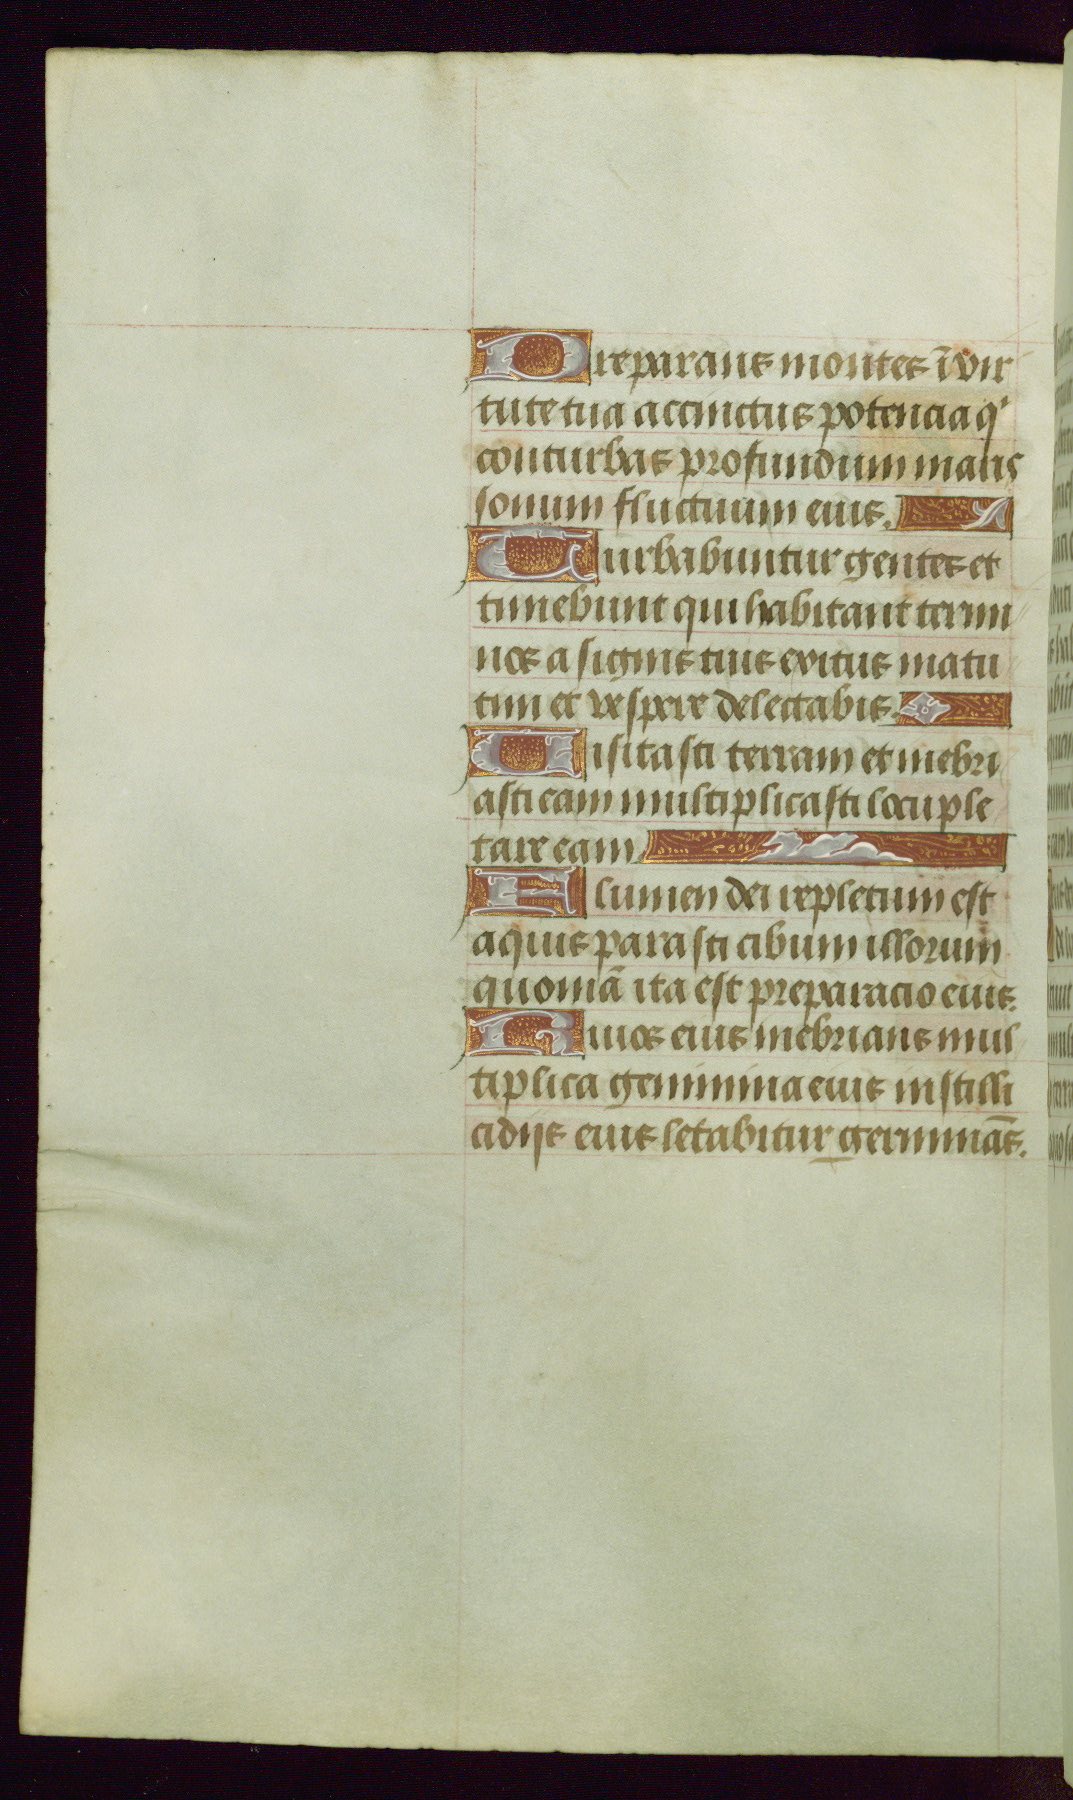 Preparans montes ī vir
tute tua accinctus potencia qͥ
conturbas profundum maris
sonum fluctuum eius.
Turbabuntur gentes et
timebunt qui habitant termi
nos a signis tuis exitus matu
tini et vespere delectabis.
Visitasti terram et inebri
asti eam multiplicasti locuple
tare eam
Flumen dei repletum est
aquis parasti cibum illorum
quoniā ita est preparacio eius.
Riuos eius inebrians mul
tiplica genimina eius in stilli
cidijs eius letabitur germinās.